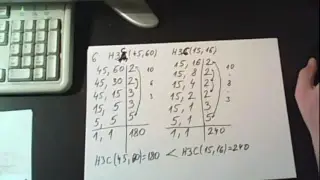 6 НЗС(45,60)
45, 60 | 2
45, 30 | 2
45, 15 | 3
15, 5 | 3
5, 5 | 5
1, 1 | 180
НЗС(15,16)
15, 16 | 2
15, 8 | 2
15, 4 | 2
15, 2 | 2
15, 1 | 3
5, 1 | 5
1, 1 | 240
НЗС(45,60)=180 < НЗС(15,16)=240